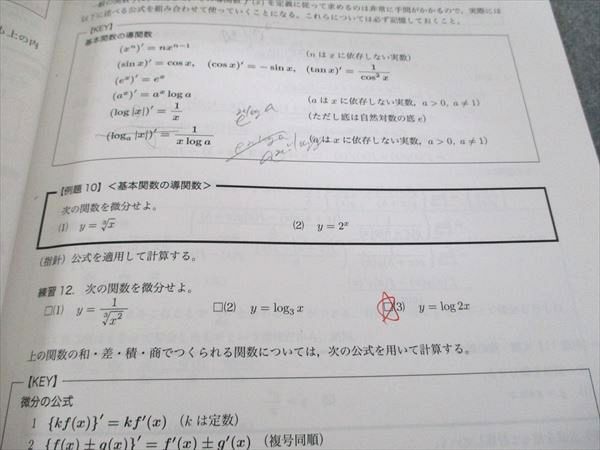 以下に述べる公式を組み合わせて使っていくことになる。これらについては必ず記憶しておくこと。
【KEY】
基本関数の導関数
(xⁿ)′ = nxⁿ⁻¹ (n は x に依存しない実数)
(sin x)′ = cos x, (cos x)′ = −sin x, (tan x)′ = 1/cos² x
(eˣ)′ = eˣ
(aˣ)′ = aˣ log a (a は x に依存しない実数, a > 0, a ≠ 1)
(log |x|)′ = 1/x (ただし底は自然対数の底 e)
(logₐ |x|)′ = 1/(x log a) (a は x に依存しない実数, a > 0, a ≠ 1)
【例題 10】<基本関数の導関数>
次の関数を微分せよ。
(1) y = ³√x (2) y = 2ˣ
(指針) 公式を適用して計算する。
練習 12. 次の関数を微分せよ。
□(1) y = 1/³√x² □(2) y = log₃ x □(3) y = log 2x
上の関数の和・差・積・商でつくられる関数については, 次の公式を用いて計算する。
【KEY】
微分の公式
1 {kf(x)}′ = kf′(x) (k は定数)
2 {f(x) ± g(x)}′ = f′(x) ± g′(x) (複号同順)